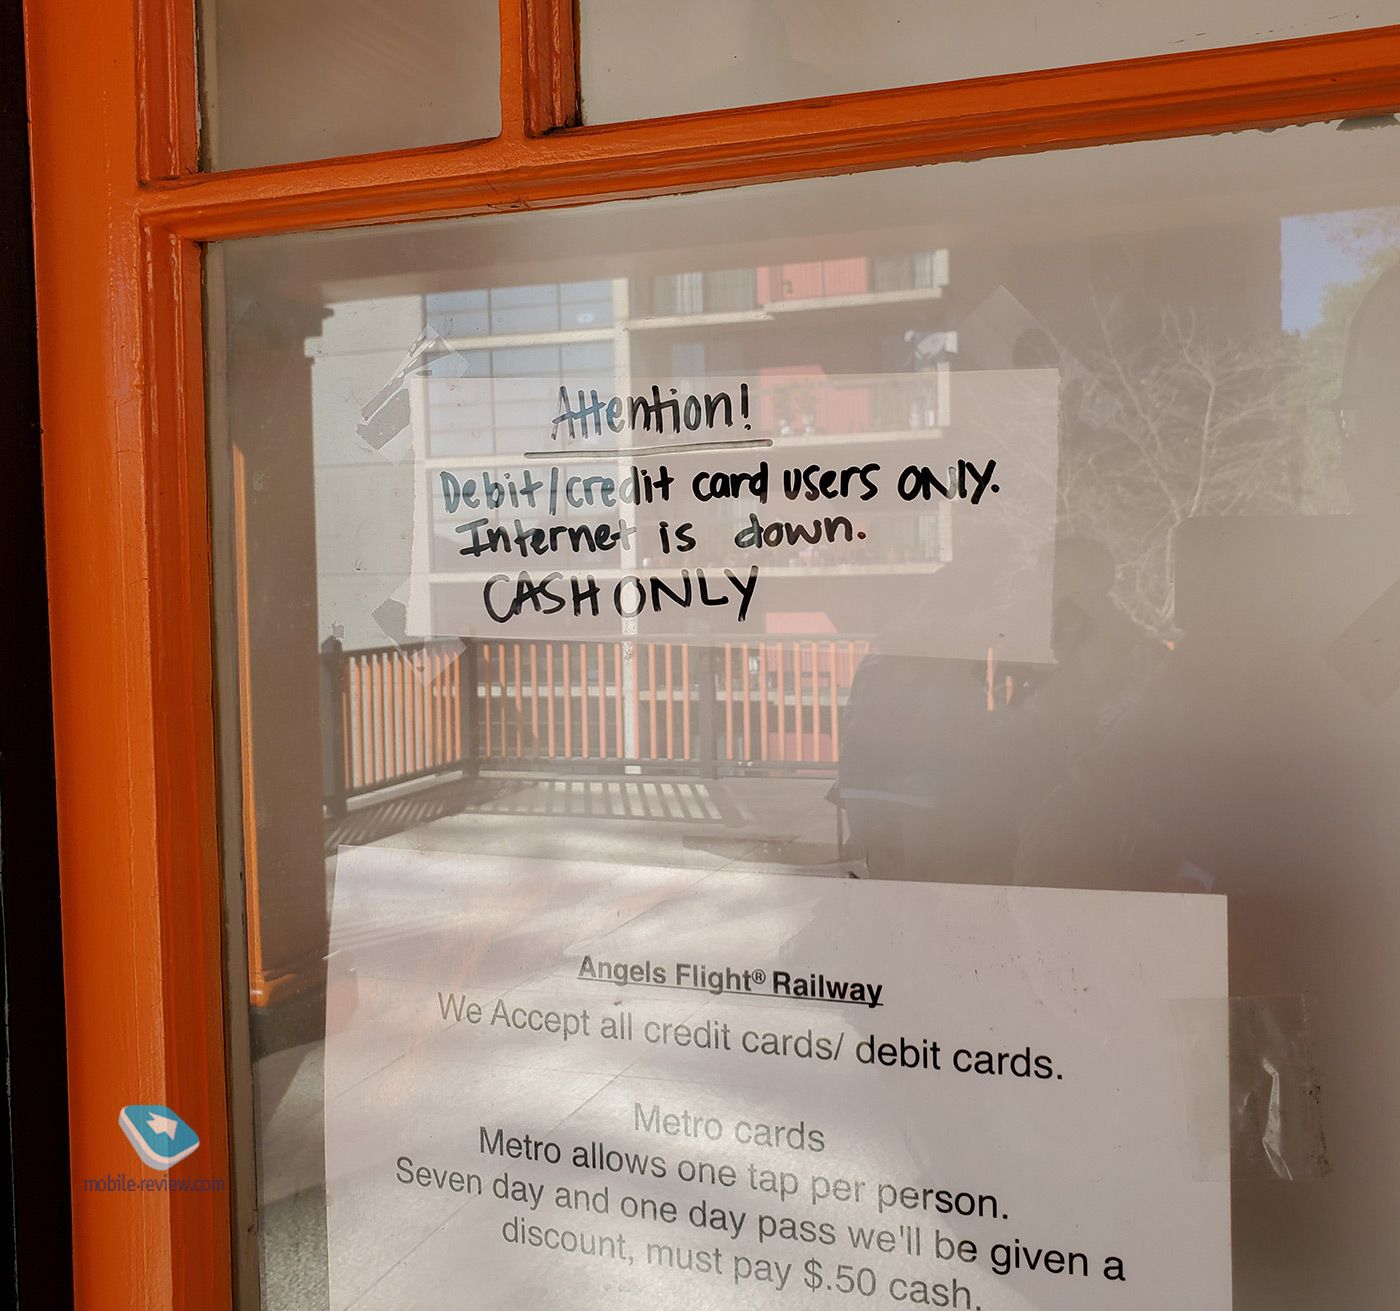 Attention!
Debit/credit card users ONLY.
Internet is down.
CASH ONLY
Angels Flight® Railway
We Accept all credit cards/ debit cards.
Metro cards
Metro allows one tap per person.
Seven day and one day pass we'll be given a
discount, must pay $.50 cash.
mobile-review.com